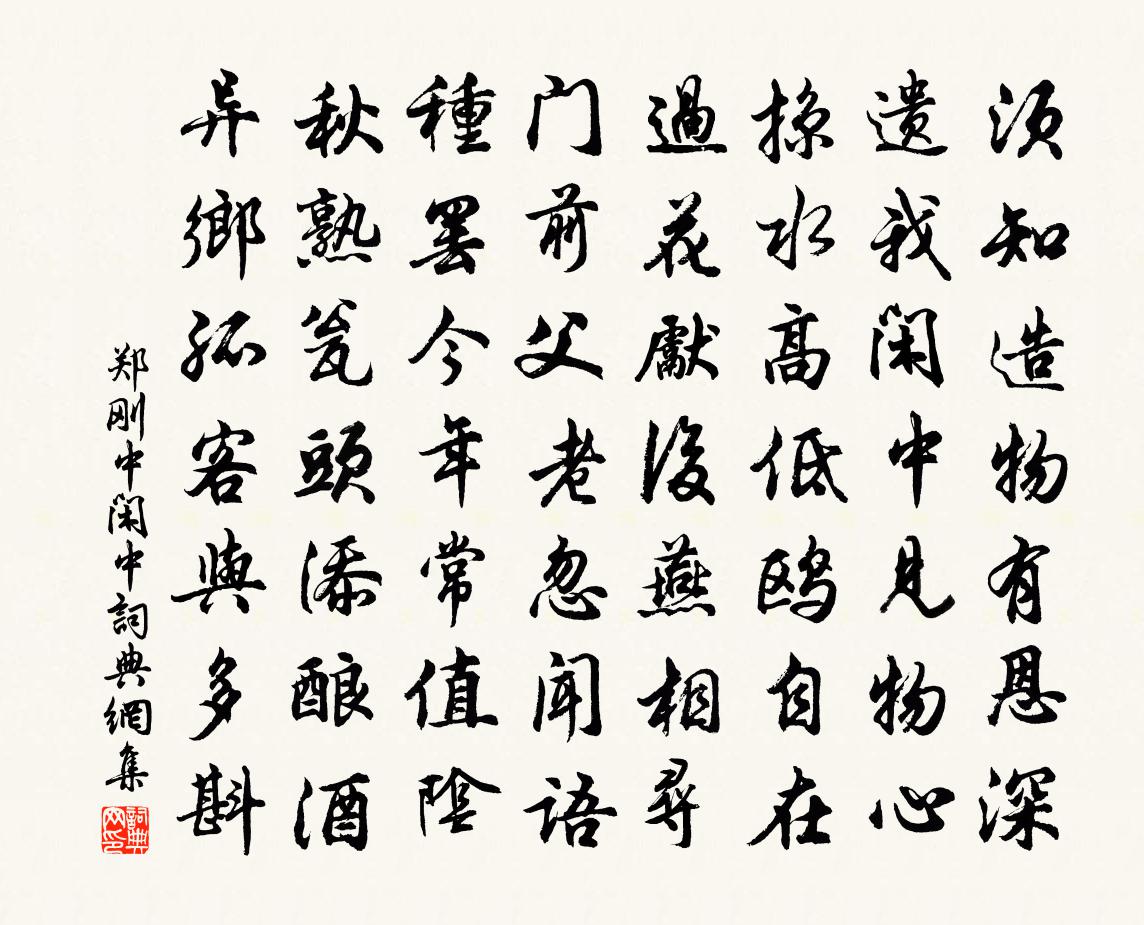 须知造物有恩深
遗我闲中见物心
掠水高低鸥自在
過花獻後燕相尋
门前父老忽闻语
種罢今年常值陰
秋熟瓮頭添酿酒
异鄉孤客與多斟
郑刚中闲中詞典網集
詞典网印